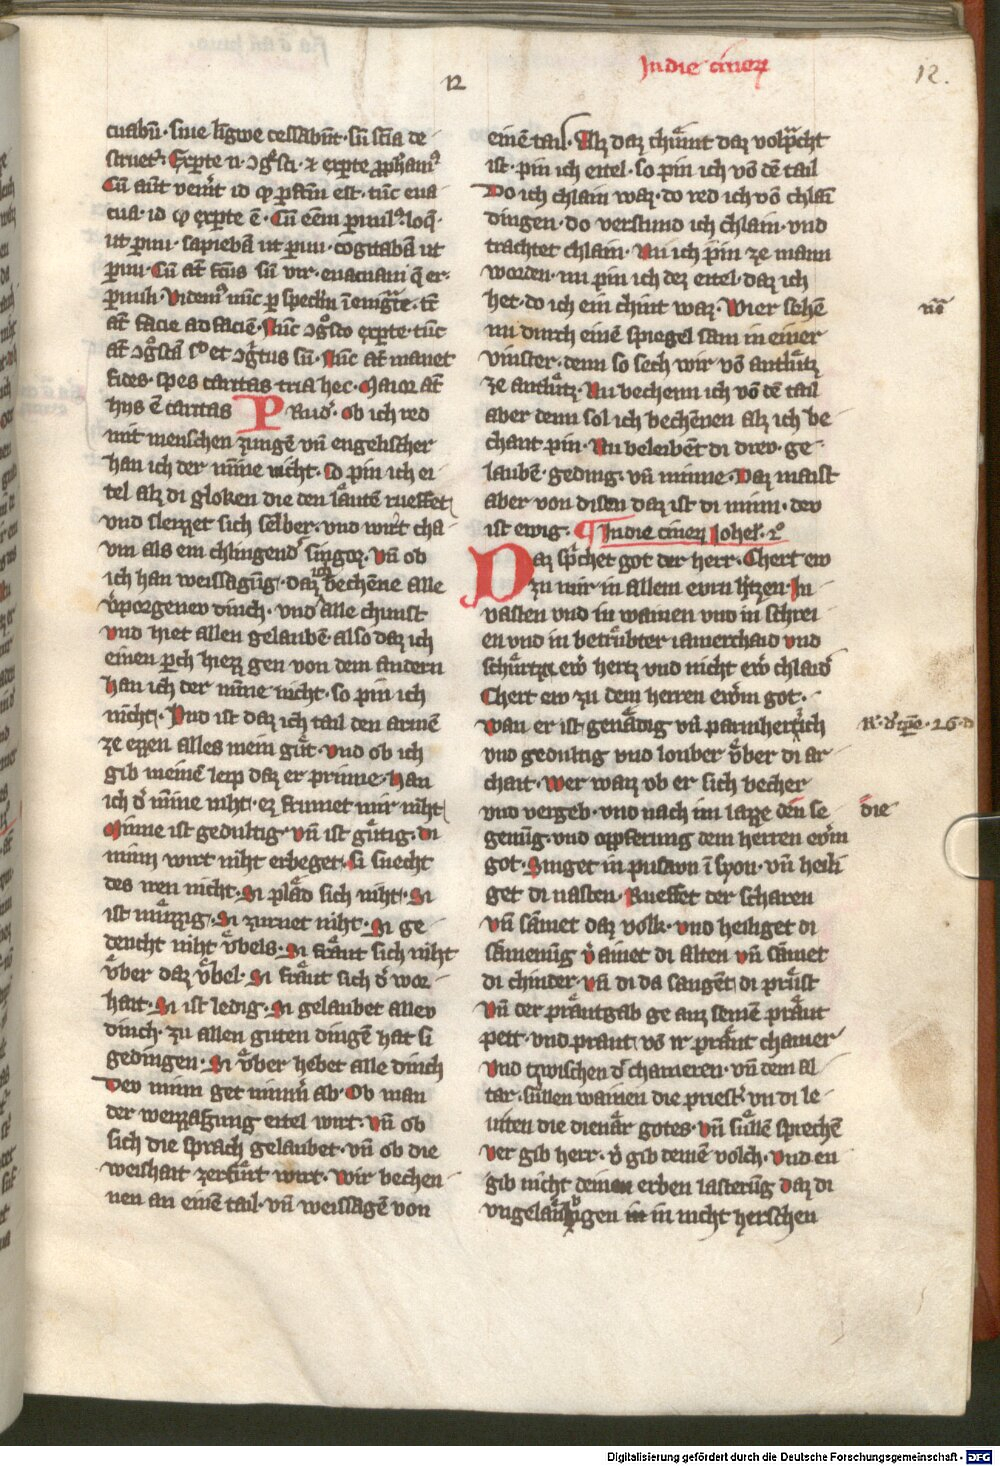 In die cineꝝ
12
12.
cuabūt· siue lingwe cessabūnt· siū scīa de
struet᷑· Ex ꝑte n̄· ↄgͦsci· ⁊ ex ꝑte ꝓph̄amꝰ
Cū aūt ven̄it id qͥ ꝑfctm̄ est· tūc eua
cua· id qͥ ex ꝑte ē· Cū eēm ꝑuulꝰ· loq̄·
ut ꝑuu· sapiebā ut ꝑuu· cogitabā ut
ꝑuu· Cū at̄ fc̄us sū vir· euacuaui q̄ er·
ꝑuuli· Videmꝰ nūc ꝑ spec̄lm ī enig̃te· tc̄
at̄ facie ad faciē· Nūc ↄgͦsco ex ꝑte· tūc
at̄ ↄgͦscā sͥ et ↄgͥtus sū· Nūc at̄ manet
fides· spes caritas tria hec· Maior at̄
hijs ē caritas P Rud᷑· Ob ich red
mit menschen zungē vn̄ engelischer
han ich der mīne nicht· So pin ich ei
tel alz di gloken die den laͤutē rueffet
vnd slezzet sich selber· vnd wirt cha
vm als ein chlingend᷑ singoz· Vn̄ ob
ich han weissagūg· daz ich bechēne alle
v᷑porgenev dinch· vnd alle chunst
vnd hiet allen gelaubē also daz ich
einen perch hiezz gen von dem andern
han ich der mīne nicht· so pin ich
nicht· Vnd ist daz ich tail den armē
ze ezzen alles mein guͤt· vnd ob ich
gib meinē leip daz er prinne· Han
ich d᷑ mīne niht· ez frumet mir niht
Minne ist gedultig· vn̄ ist guͤtig· di
minn wirt niht erbeget· Si suecht
des iren nicht· Si plaͤd sich niht· Si
ist muͤzzig· Si zurnet niht· Si ge
dencht niht vͤbels· Si fraͤut sich niht
vͤber daz vͤbel· Si fraͤut sich d᷑ wor
hait· Si ist ledig· Si gelaubet allev
dinch· zu allen guten dingē hat si
gedingen· Si vͤber hebet alle dinch
Dev minn get nim̄ ab· Ob man
der weizzagung eitel wirt· vn̄ ob
sich die sprach gelaubet· vn̄ ob die
weishait zerfuͤrt wirt· Wir bechen
nen an einē tail· vn̄ weissagē von
einē tail· Alz daz chuͤmt daz volp̄cht
ist· pin ich eitel· so pin ich vō dē tail
Do ich chlain waz· do red ich vō chlaī
dingen· do verstund ich chlain· vnd
trachtet chlain· Nu ich pin ze mann
worden· nu pin ich dez eitel· daz ich
het· do ich ein chint waz· Wier sehē
nu durch einē spiegel sam in einer
vinster· denn so sech wir vō antluͤtz
ze antluͤtz· Nu bechenn ich vō dē tail
aber denn sol ich bechēnen alz ich be
chant pin· Nu beleibent di drev· ge
laubē· geding· vn̄ minne· Daz maist
aber von disen daz ist di minn· dev
ist ewig· ¶ In die cineꝝ Johel· 2º
Daz sp̄chet got der herr· Chert ew
zu mir in allem eurn hᷣtzen· In
vasten vnd in wainen vnd in schrei
en vnd in betruͤbter iamerchaid vnd
schuͤrtzt ewͤ hertz vnd nicht ewͤ chlaid᷑
Chert ew zu dem herren ewͤm got·
wan er ist genaͤdig vn̄ parmhertzich
vnd gedultig vnd louber vͤber di ar
chait· Wer waiz ob er sich becher
vnd vergeb· vnd nach im lazze den se
genūg· vnd oppferung dem herren ewͤm
got· Singet in pusawn ī syon· vn̄ heili
get di vasten· Rueffet der scharen
vn̄ sāmet daz volk· vnd heiliget di
sāmenūg v᷑ainet di alten vn̄ sāmet
di chinder· vn̄ di da saugent di pruͤst
vn̄ der praͤutgab ge auz seinē praͤut
pett· vnd praut vō ir praͤut chamer
vnd tzwischen d᷑ chameren· vn̄ dem al
tar· suͤllen wainen die priest᷑ vn̄ di le
uiten die dienaͤr gotes· vn̄ suͤllē sprechē
ver gib herr· v᷑ gib deinē volch· vnd en
gib nicht deinen erben lasterūg daz di
vngelaubigen in in nicht herschen
die